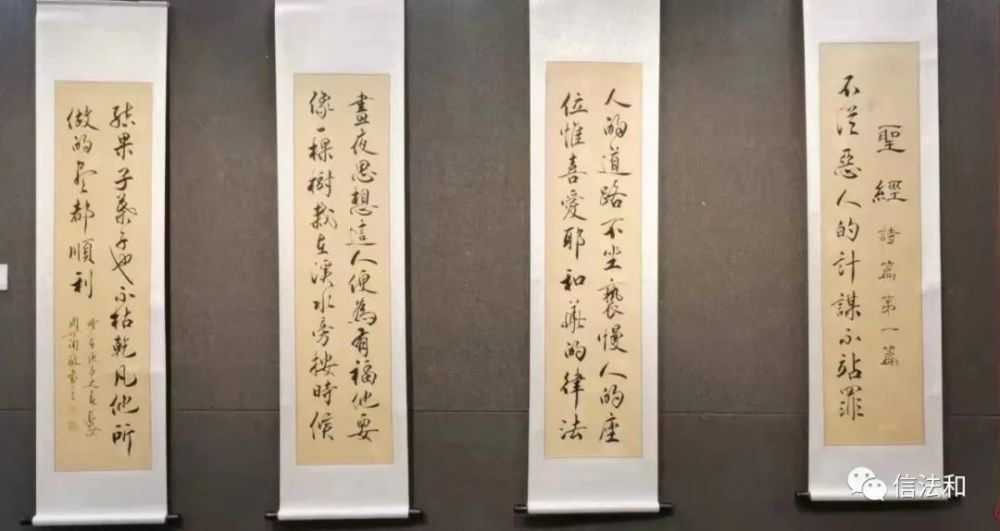 聖經 詩篇第一篇
不從惡人的計謀不站罪
人的道路不坐褻慢人的座
位惟喜愛耶和華的律法
晝夜思想這人便為有福他要
像一棵樹栽在溪水旁按時候
結果子葉子也不枯乾凡他所
做的盡都順利
信法和